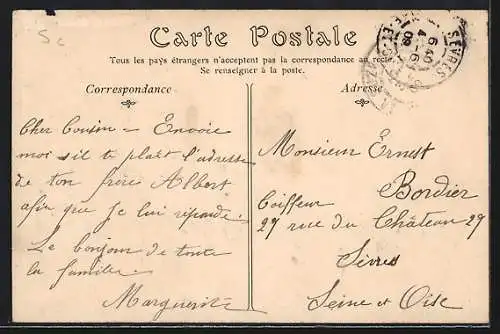 Sc
Carte Postale
Tous les pays étrangers n'acceptent pas la correspondance au recto
Se renseigner à la poste.
Correspondance
Adresse
SÈVRES
6 40
4-6
09
Cher Cousin - Envoie
moi s'il te plaît l'adresse
de ton frère Albert
afin que je lui réponde.
Le bonjour de toute
la famille
Marguerite
Monsieur Ernest
Bordier
Coiffeur
27 rue du Château 27
Sèvres
Seine et Oise